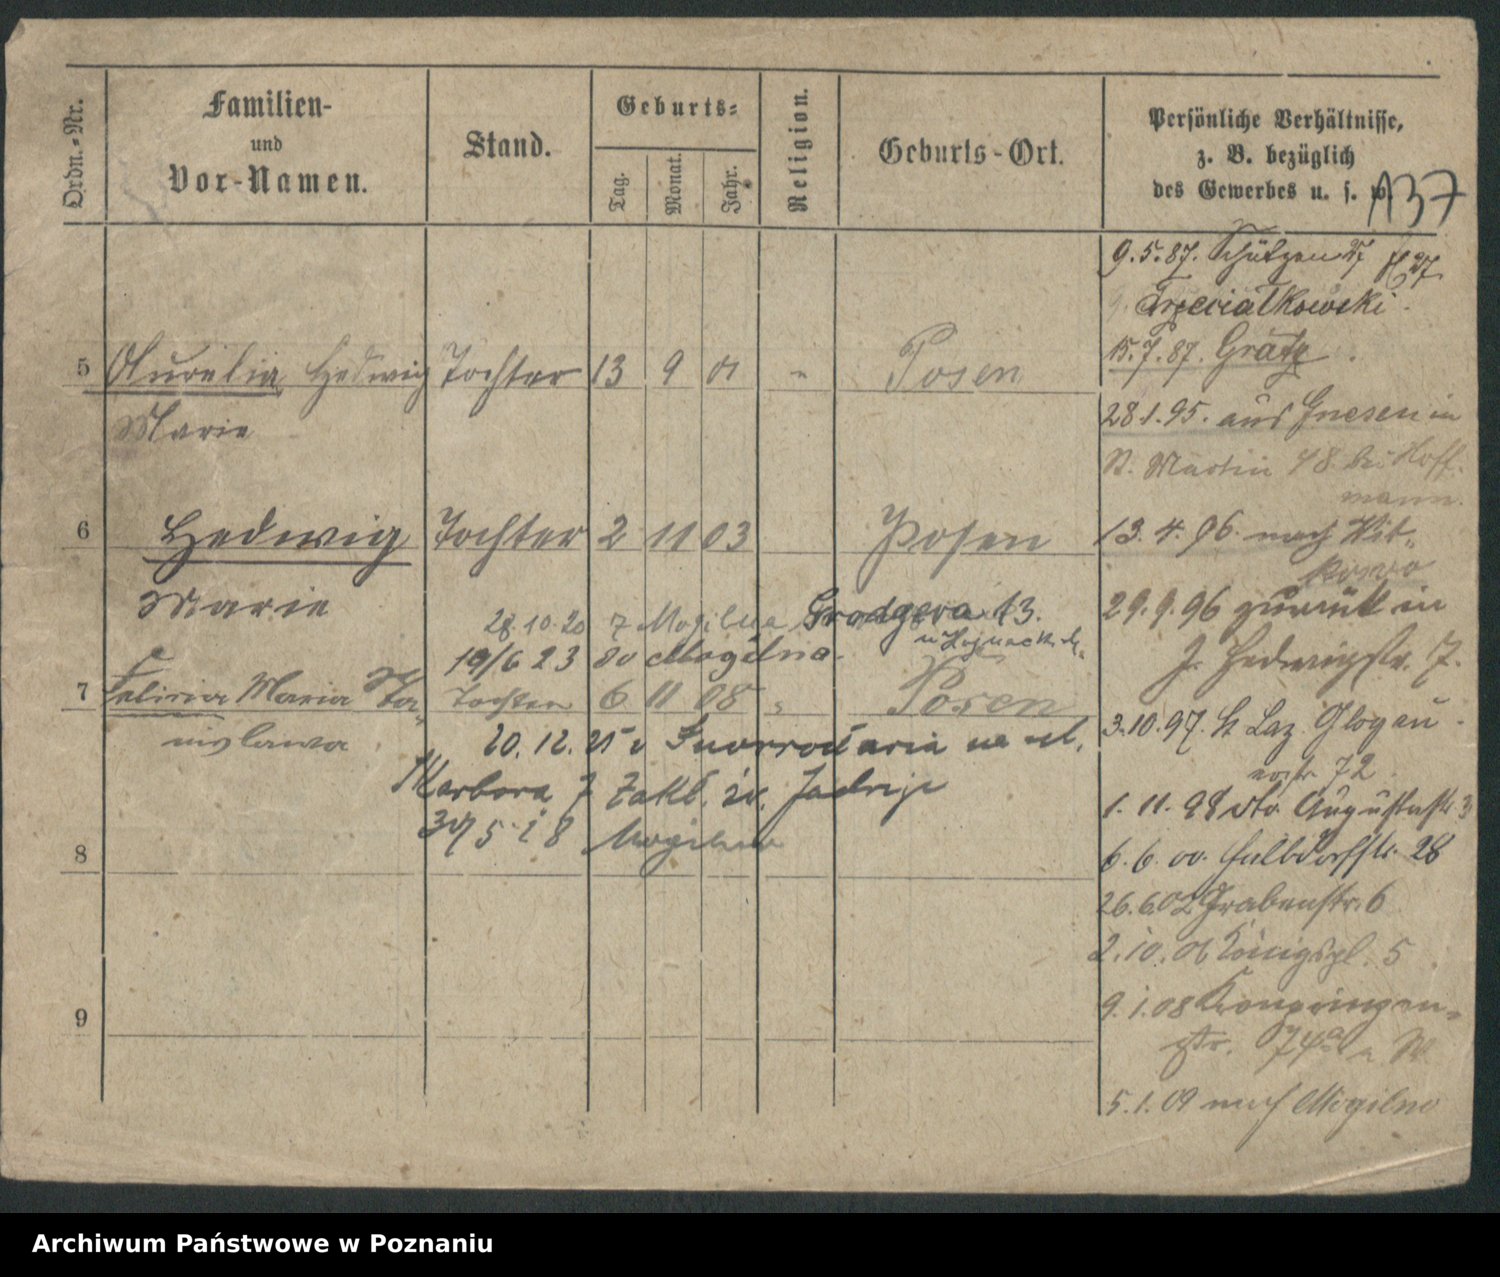 Ordn.-Nr.
Familien-
und
Vor-Namen.
Stand.
Geburts-
Tag.
Monat.
Jahr.
Religion.
Geburts-Ort.
Persönliche Verhältnisse,
z. B. bezüglich
des Gewerbes u. s. w.
137
5 Aurelia Hedwig Tochter 13 9 01 " Posen
Marie
6 Hedwig Tochter 2 11 03 Posen
Marie
28.10.20 7 Mogilna Grodgera 13.
19/6 23 80 Mogilna.
7 Felicia Maria Sta-
nislawa
Tochter 6 11 08 " Posen
20.12.25 v Inowrocławia na ul.
Skarbora 7 Zakł. św. Jadwigi
30/5 28 Mogilna
8
9
9.5.87. Schützenstr 27
Trzeciatkowski.
15.7.87. Grätz.
28.1.95. aus Gnesen in
St. Martin 48 bei Hoff-
mann.
13.4.96. nach Wit-
kowo
29.9.96 zurück in
Hedwigstr. 7.
3.10.97. St Laz. Glogau-
erstr. 72.
1.11.98 dto Augustastr 3
6.6.00. Halbdorfstr. 28
26.6.02 Grabenstr. 6
2.10.06 Königspl. 5
9.1.08 Kronprinzen-
str. 74a
5.1.09 nach Mogilno
Archiwum Państwowe w Poznaniu